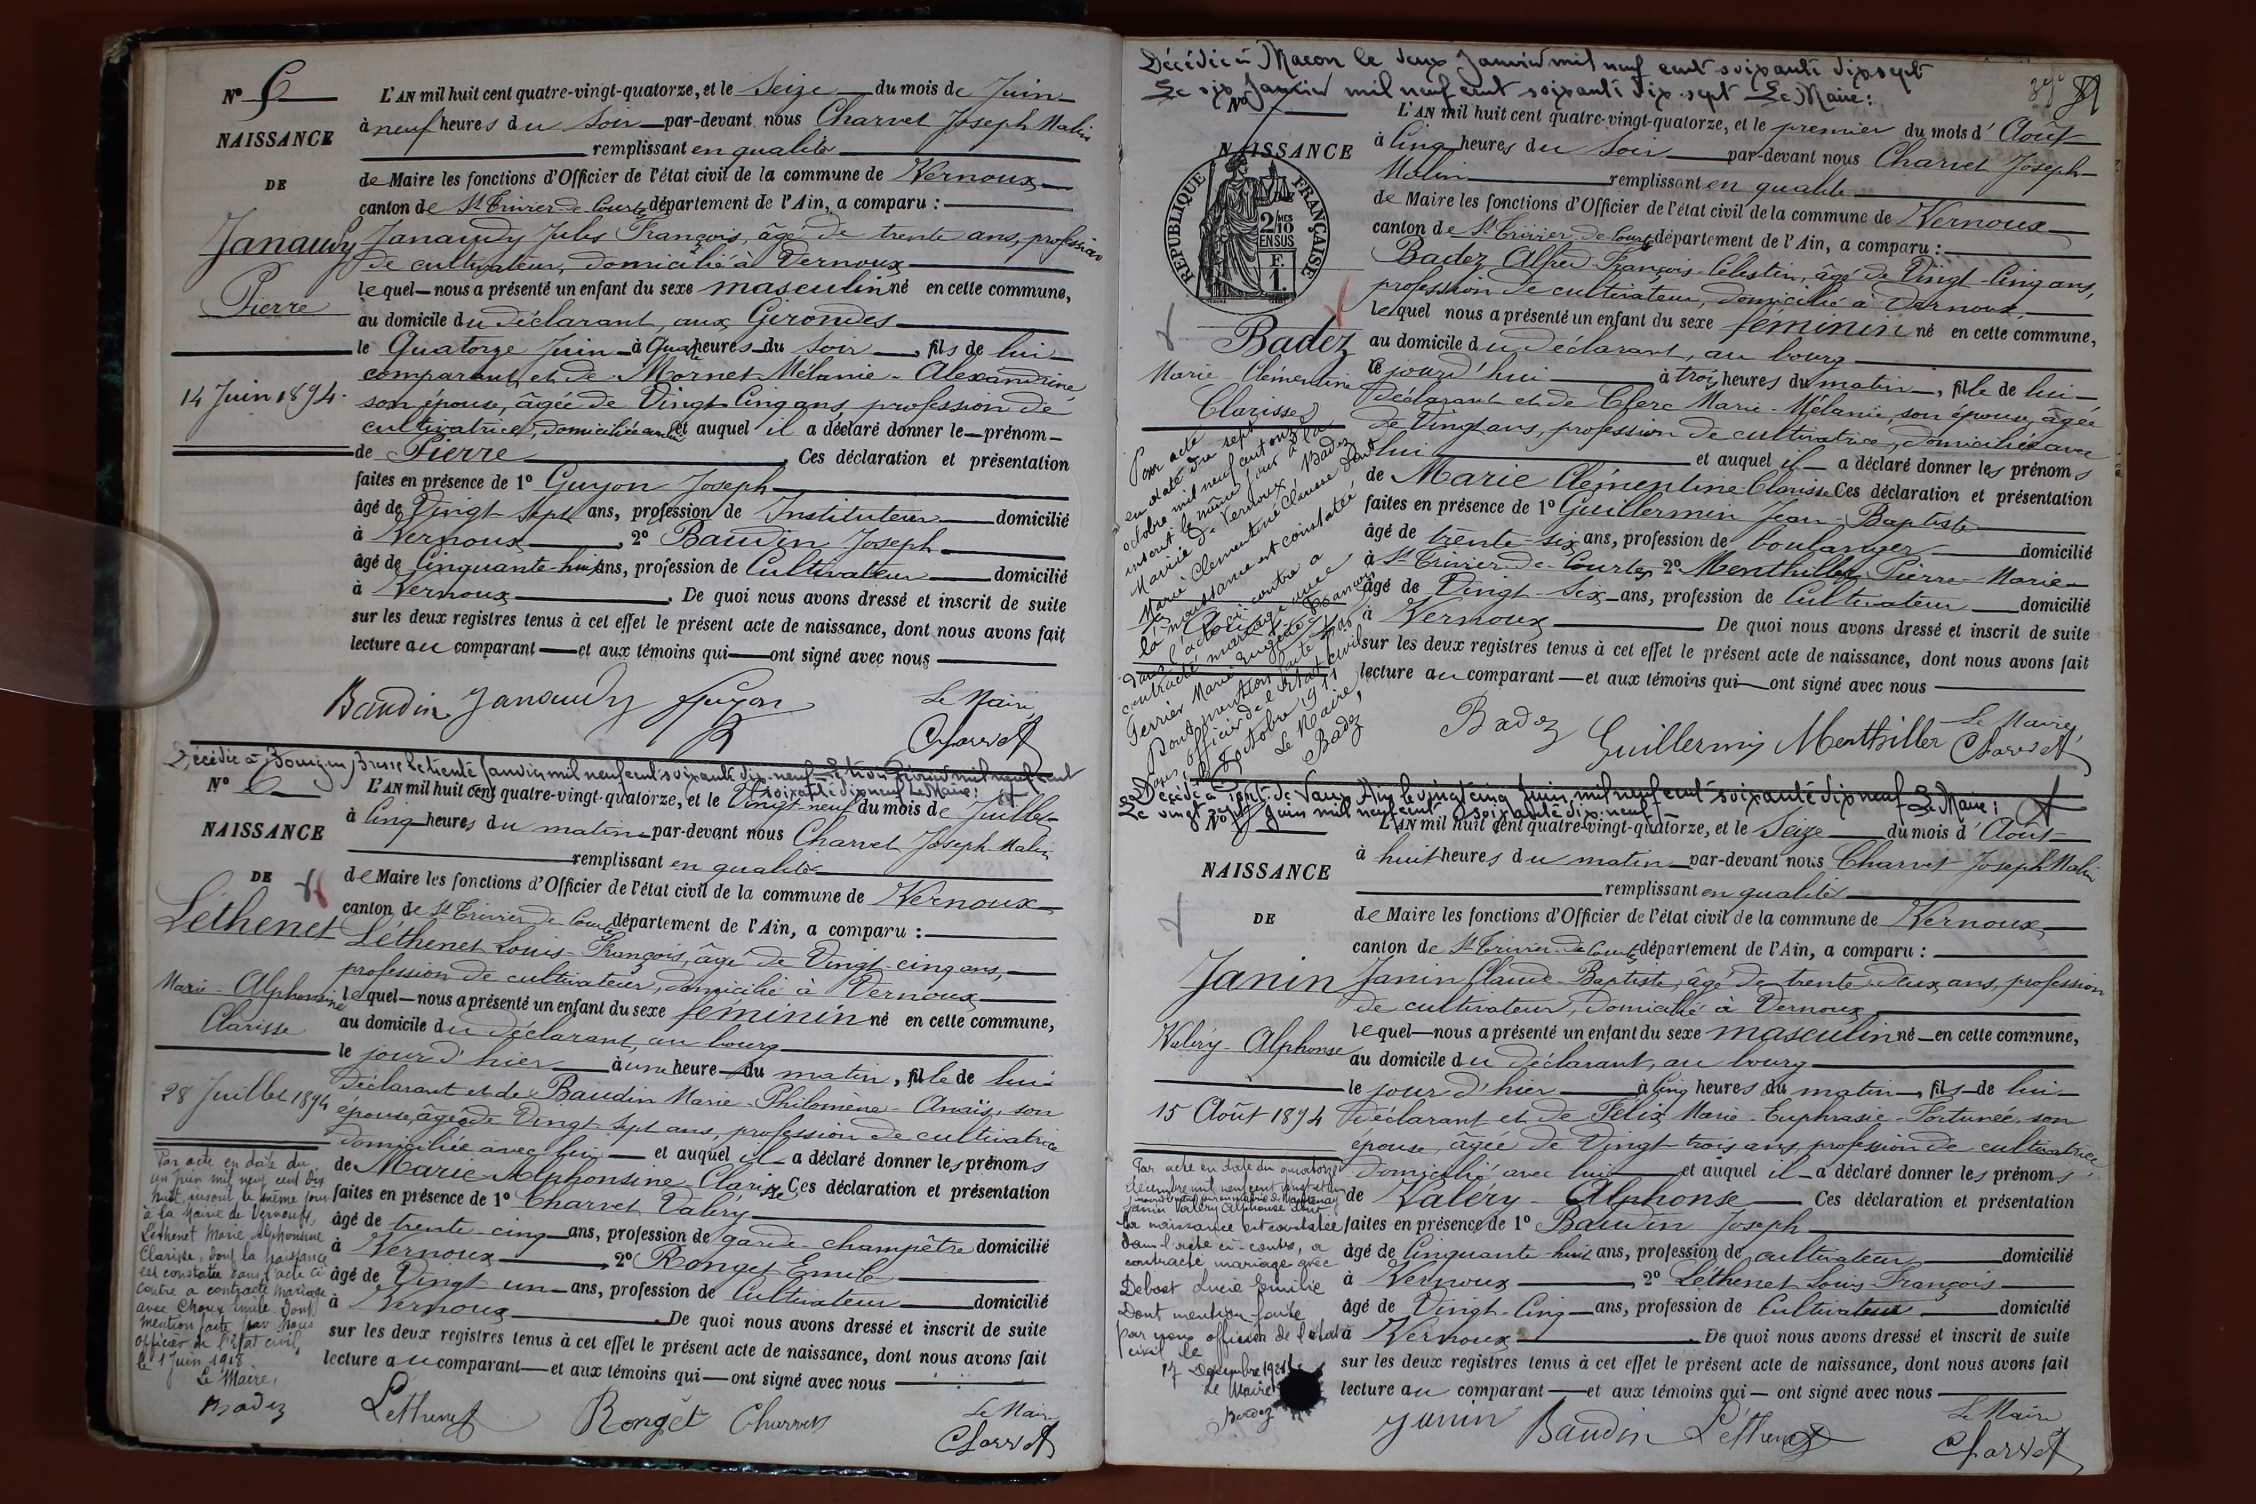 N° 5
NAISSANCE
DE
Janaudy
Pierre
14 Juin 1894.
L'AN mil huit cent quatre-vingt-quatorze, et le Seize du mois de Juin
à neuf heures du soir par-devant nous Charvet Joseph Malin
remplissant en qualité
de Maire les fonctions d'Officier de l'état civil de la commune de Vernoux
canton de St Trivier de Courtes département de l'Ain, a comparu :
Janaudy Jules François, âgé de trente ans, profession
de cultivateur, domicilié à Vernoux
lequel nous a présenté un enfant du sexe masculin né en cette commune,
au domicile du déclarant, aux Girondes
le Quatorze Juin à Quatre heures du soir, fils de lui
comparant et de Mornet Mélanie-Alexandrine
son épouse, âgée de Vingt Cinq ans, profession de
cultivatrice, domiciliée avec lui et auquel il a déclaré donner le prénom
de Pierre Ces déclaration et présentation
faites en présence de 1° Guyon Joseph
âgé de Vingt-sept ans, profession de Instituteur domicilié
à Vernoux, 2° Baudin Joseph
âgé de Cinquante-huit ans, profession de Cultivateur domicilié
à Vernoux. De quoi nous avons dressé et inscrit de suite
sur les deux registres tenus à cet effet le présent acte de naissance, dont nous avons fait
lecture au comparant et aux témoins qui ont signé avec nous
Baudin Janaudy Guyon Le Maire
Charvet
Décédée à Bourg en Bresse le trente Janvier mil neuf cent soixante dix-neuf Le trois Février mil neuf cent
soixante dix neuf Le Maire :
N° 6
NAISSANCE
DE
Léthenet
Marie-Alphonsine
Clarisse
28 Juillet 1894
Par acte en date du
un Juin mil neuf cent dix
huit, inscrit le même jour
à la Mairie de Vernoux,
Léthenet Marie Alphonsine
Clarisse, dont la naissance
est constatée dans l'acte ci
contre a contracté mariage
avec Choux Emile. Dont
mention faite par nous
officier de l'Etat civil
le 1 Juin 1918
Le Maire,
Badez
L'AN mil huit cent quatre-vingt-quatorze, et le Vingt-neuf du mois de Juillet
à Cinq heures du matin par-devant nous Charvet Joseph Malin
remplissant en qualité
de Maire les fonctions d'Officier de l'état civil de la commune de Vernoux
canton de St Trivier de Courtes département de l'Ain, a comparu :
Léthenet Louis-François, âgé de Vingt-cinq ans,
profession de cultivateur, domicilié à Vernoux
lequel nous a présenté un enfant du sexe féminin né en cette commune,
au domicile du déclarant, au bourg
le jour d'hier à une heure du matin, fille de lui
déclarant et de Baudin Marie-Philomène-Anaïs, son
épouse, âgée de Vingt sept ans, profession de cultivatrice
domiciliée avec lui et auquel il a déclaré donner les prénoms
de Marie-Alphonsine-Clarisse Ces déclaration et présentation
faites en présence de 1° Charvet Valéry
âgé de trente-cinq ans, profession de garde-champêtre domicilié
à Vernoux, 2° Ronget Emile
âgé de Vingt-un ans, profession de Cultivateur domicilié
à Vernoux. De quoi nous avons dressé et inscrit de suite
sur les deux registres tenus à cet effet le présent acte de naissance, dont nous avons fait
lecture au comparant et aux témoins qui ont signé avec nous
Léthenet Ronget Charvet Le Maire
Charvet
Décédée à Macon le deux Janvier mil neuf cent soixante dix sept
Le six Janvier mil neuf cent soixante dix-sept Le Maire :
N° 7
NAISSANCE
RÉPUBLIQUE FRANÇAISE
2/10 MES EN SUS
F. 1
Badez
Marie-Clémentine
Clarisse
Par acte
en date du sept
octobre mil neuf cent onze
inscrit le même jour à la
Mairie de Vernoux, Badez
Marie Clémentine Clarisse dont
la naissance est constatée
dans l'acte ci contre a
contracté mariage avec
Perrier Marie Eugène François
Dont mention faite par
nous, officier de l'Etat civil
le 8 octobre 1911
Le Maire,
Badez
L'AN mil huit cent quatre-vingt-quatorze, et le premier du mois d'Août
à Cinq heures du soir par-devant nous Charvet Joseph
Malin remplissant en qualité
de Maire les fonctions d'Officier de l'état civil de la commune de Vernoux
canton de St Trivier de Courtes département de l'Ain, a comparu :
Badez Alfred-François-Célestin, âgé de Vingt-Cinq ans,
profession de cultivateur, domicilié à Vernoux,
lequel nous a présenté un enfant du sexe féminin né en cette commune,
au domicile du déclarant, au bourg
le jourd'hui à trois heures du matin, fille de lui
déclarant et de Clerc Marie-Mélanie, son épouse, âgée
de Vingt ans, profession de cultivatrice, domiciliée avec
lui et auquel il a déclaré donner les prénoms
de Marie Clémentine Clarisse Ces déclaration et présentation
faites en présence de 1° Guillermin Jean-Baptiste
âgé de trente-six ans, profession de boulanger domicilié
à St Trivier-de-Courtes, 2° Menthiller Pierre-Marie
âgé de Vingt-Six ans, profession de Cultivateur domicilié
à Vernoux De quoi nous avons dressé et inscrit de suite
sur les deux registres tenus à cet effet le présent acte de naissance, dont nous avons fait
lecture au comparant et aux témoins qui ont signé avec nous
Badez Guillermin Menthiller Le Maire,
Charvet
Décédé à Pont-de-Vaux Ain le vingt cinq Juin mil neuf cent soixante dix neuf Le Maire :
Le vingt juin mil neuf cent soixante dix-neuf
N° 8
NAISSANCE
DE
Janin
Valéry-Alphonse
15 Août 1894
Par acte en date du quatorze
décembre mil neuf cent vingt et un
Janin Valéry Alphonse dont
la naissance est constatée
dans l'acte ci-contre, a
contracté mariage avec
Debost Lucie Emilie
Dont mention faite
par nous officier de l'état
civil le
17 Décembre 1921
Le Maire
Badez
L'AN mil huit cent quatre-vingt-quatorze, et le Seize du mois d'Août
à huit heures du matin par-devant nous Charvet Joseph Malin
remplissant en qualité
de Maire les fonctions d'Officier de l'état civil de la commune de Vernoux
canton de St Trivier de Courtes département de l'Ain, a comparu :
Janin Claude-Baptiste, âgé de trente-deux ans, profession
de cultivateur, domicilié à Vernoux
lequel nous a présenté un enfant du sexe masculin né en cette commune,
au domicile du déclarant, au bourg
le jour d'hier à Cinq heures du matin, fils de lui
déclarant et de Félix Marie-Euphrasie-Fortunée son
épouse, âgée de Vingt-trois ans, profession de cultivatrice
domicilié avec lui et auquel il a déclaré donner les prénoms
de Valéry-Alphonse Ces déclaration et présentation
faites en présence de 1° Baudin Joseph
âgé de Cinquante-huit ans, profession de cultivateur domicilié
à Vernoux, 2° Léthenet Louis-François
âgé de Vingt-Cinq ans, profession de Cultivateur domicilié
à Vernoux. De quoi nous avons dressé et inscrit de suite
sur les deux registres tenus à cet effet le présent acte de naissance, dont nous avons fait
lecture au comparant et aux témoins qui ont signé avec nous
Janin Baudin Léthenet Le Maire
Charvet